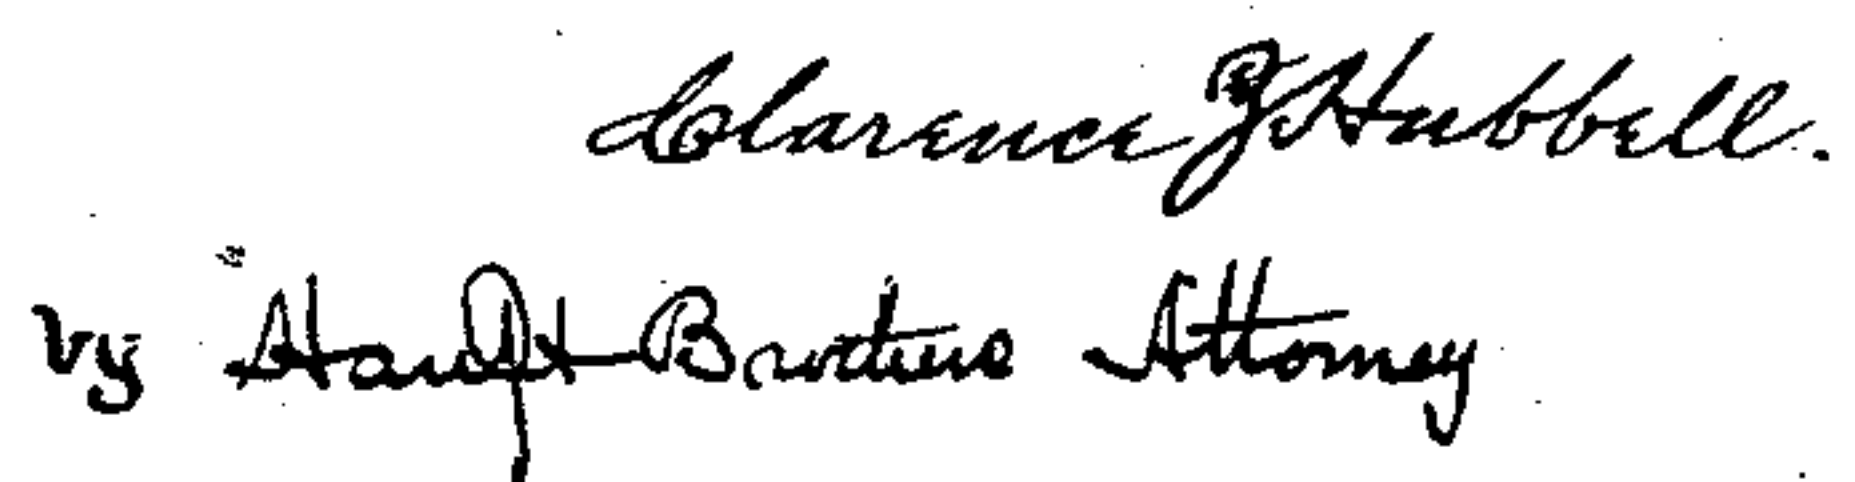 Clarence Z Hubbell.
by Haupt Brothers Attorney